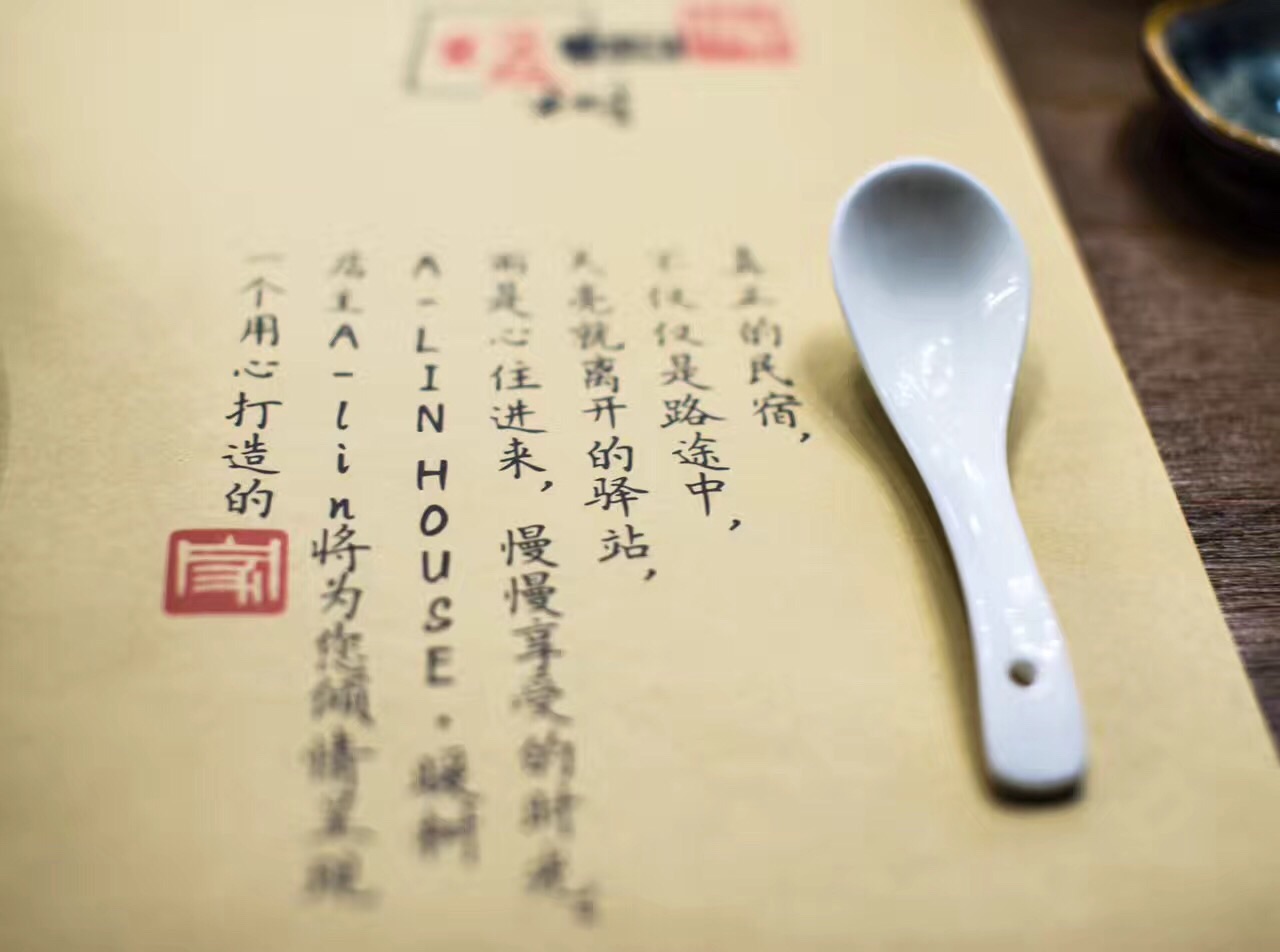 真正的民宿，
不仅仅是路途中，
天亮就离开的驿站，
而是心住进来，慢慢享受的
A-LIN HOUSE。
店主A-lin将为您倾情呈现
一个用心打造的
家